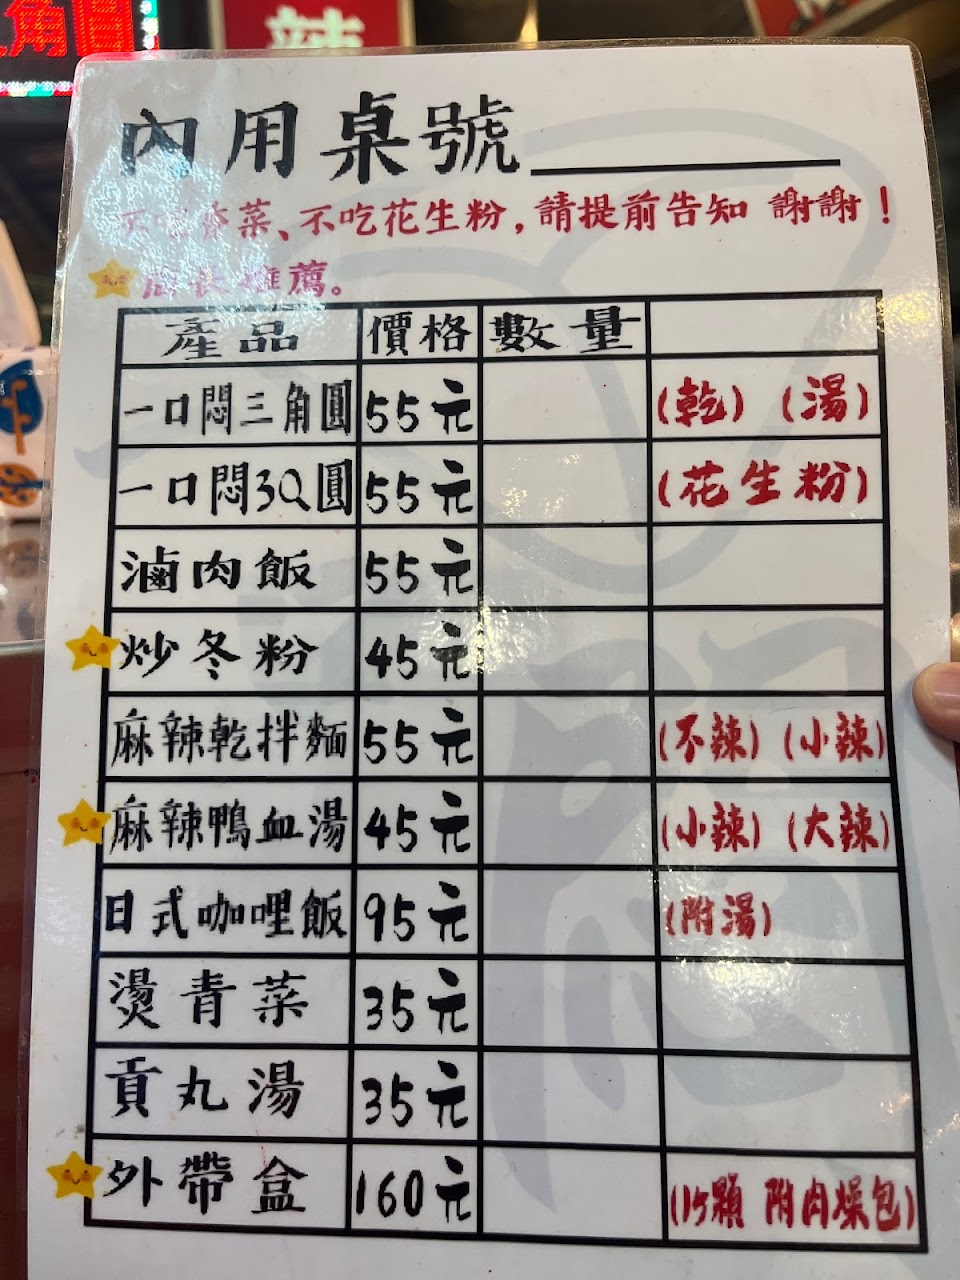 角圓
辣
內用桌號
不吃香菜、不吃花生粉，請提前告知 謝謝！
店長推薦。
產品 價格 數量
一口悶三角圓 55元 (乾) (湯)
一口悶3Q圓 55元 (花生粉)
滷肉飯 55元
炒冬粉 45元
麻辣乾拌麵 55元 (不辣) (小辣)
麻辣鴨血湯 45元 (小辣) (大辣)
日式咖哩飯 95元 (附湯)
燙青菜 35元
貢丸湯 35元
外帶盒 160元 (15顆 附肉燥包)